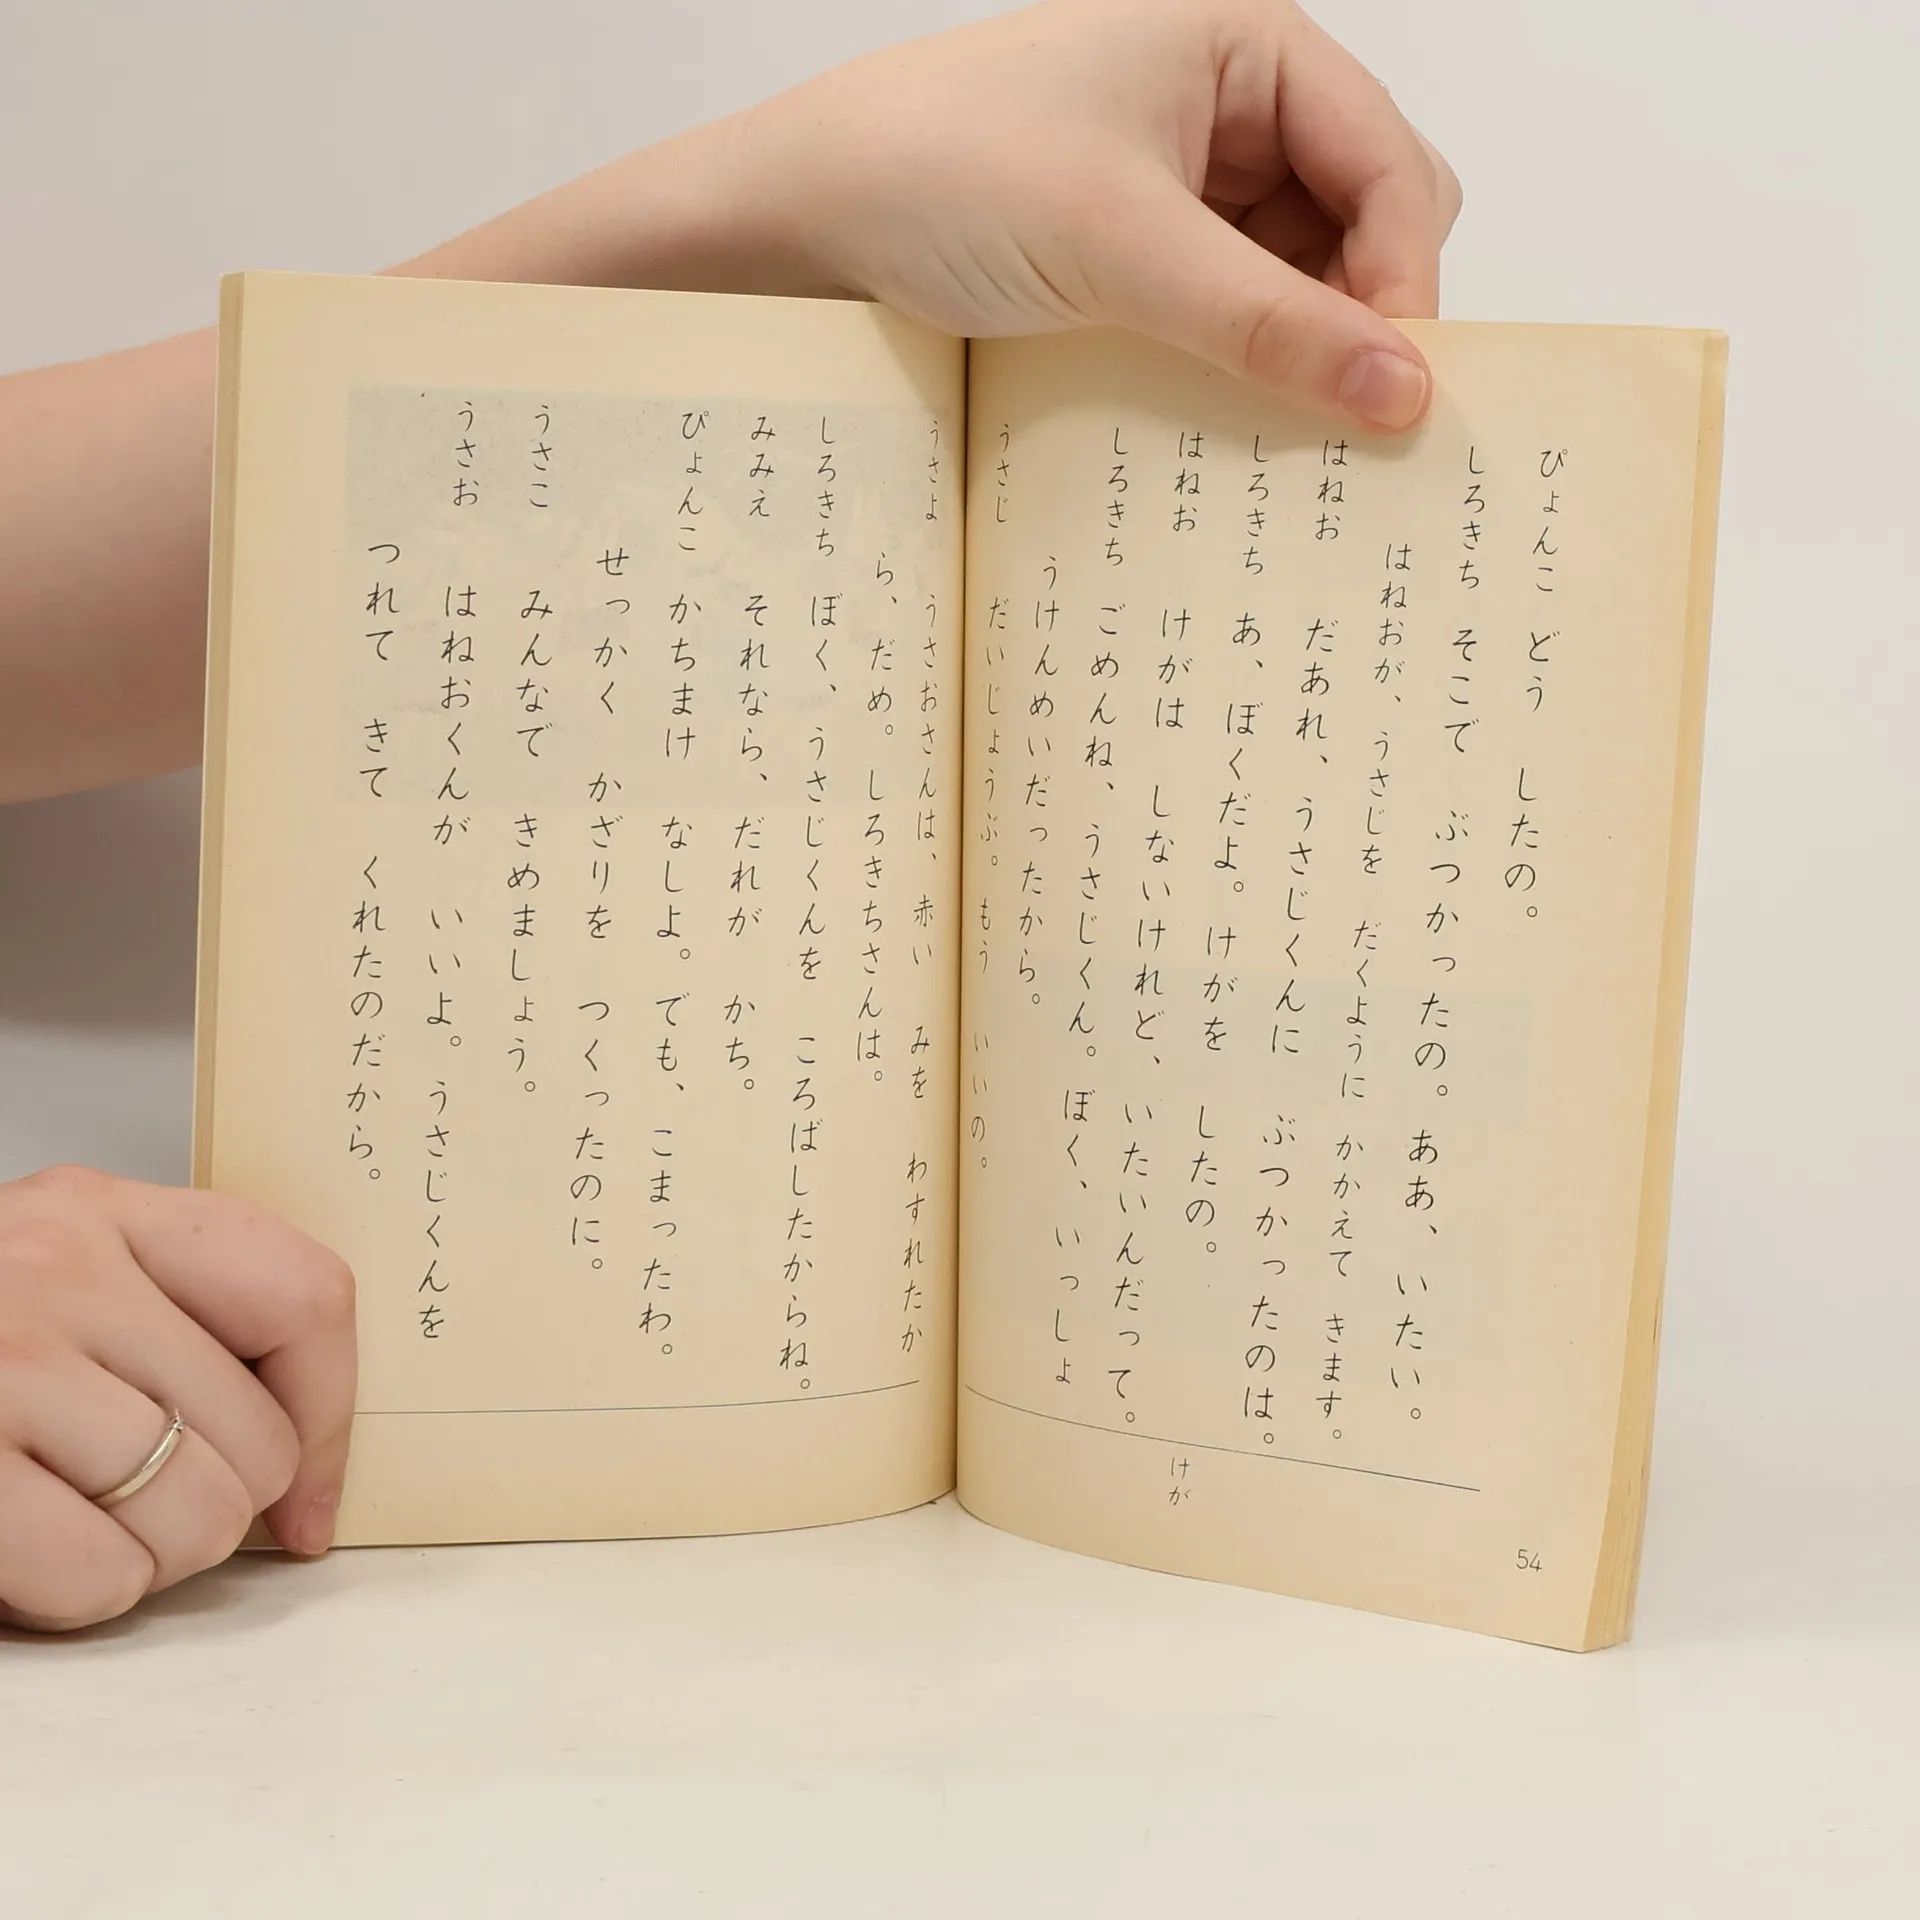 ぴょんこ どう したの。
しろきち そこで ぶつかったの。ああ、いたい。
はねおが、うさじを だくように かかえて きます。
はねお だあれ、うさじくんに ぶつかったのは。
しろきち あ、ぼくだよ。けがを したの。
はねお けがは しないけれど、いたいんだって。
しろきち ごめんね、うさじくん。ぼく、いっしょ
うけんめいだったから。
うさじ だいじょうぶ。もう いいの。
けが
54
うさよ うさおさんは、赤い みを わすれたか
ら、だめ。しろきちさんは。
しろきち ぼく、うさじくんを ころばしたからね。
みみえ それなら、だれが かち。
ぴょんこ かちまけ なしよ。でも、こまったわ。
せっかく かざりを つくったのに。
うさこ みんなで きめましょう。
うさお はねおくんが いいよ。うさじくんを
つれて きて くれたのだから。